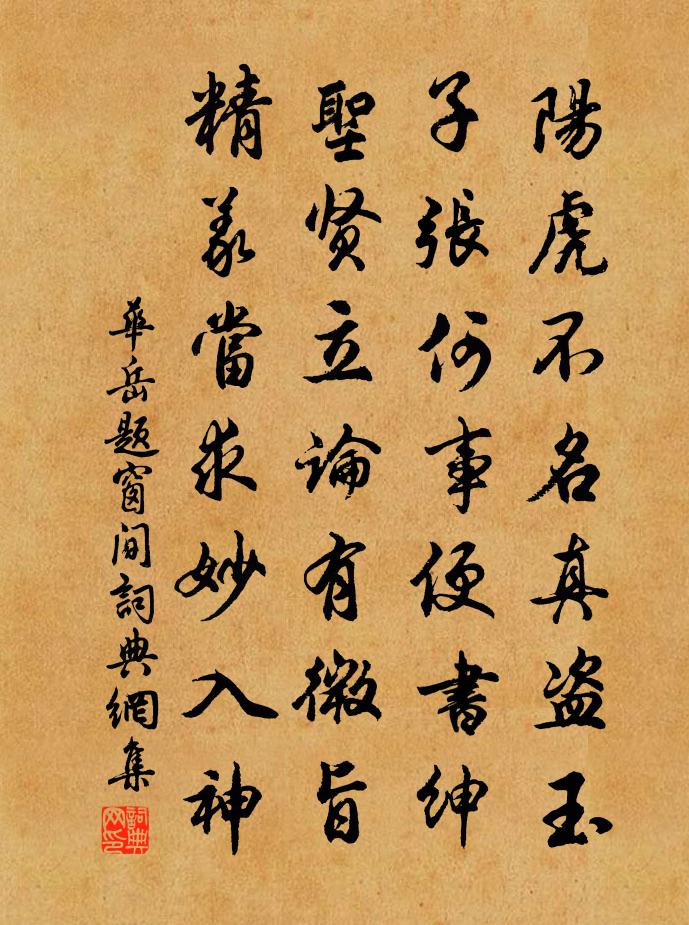 陽虎不名真盗玉
子張何事便書紳
聖贤立論有微旨
精義當求妙入神
華岳題窗间詞典網集
詞典网印